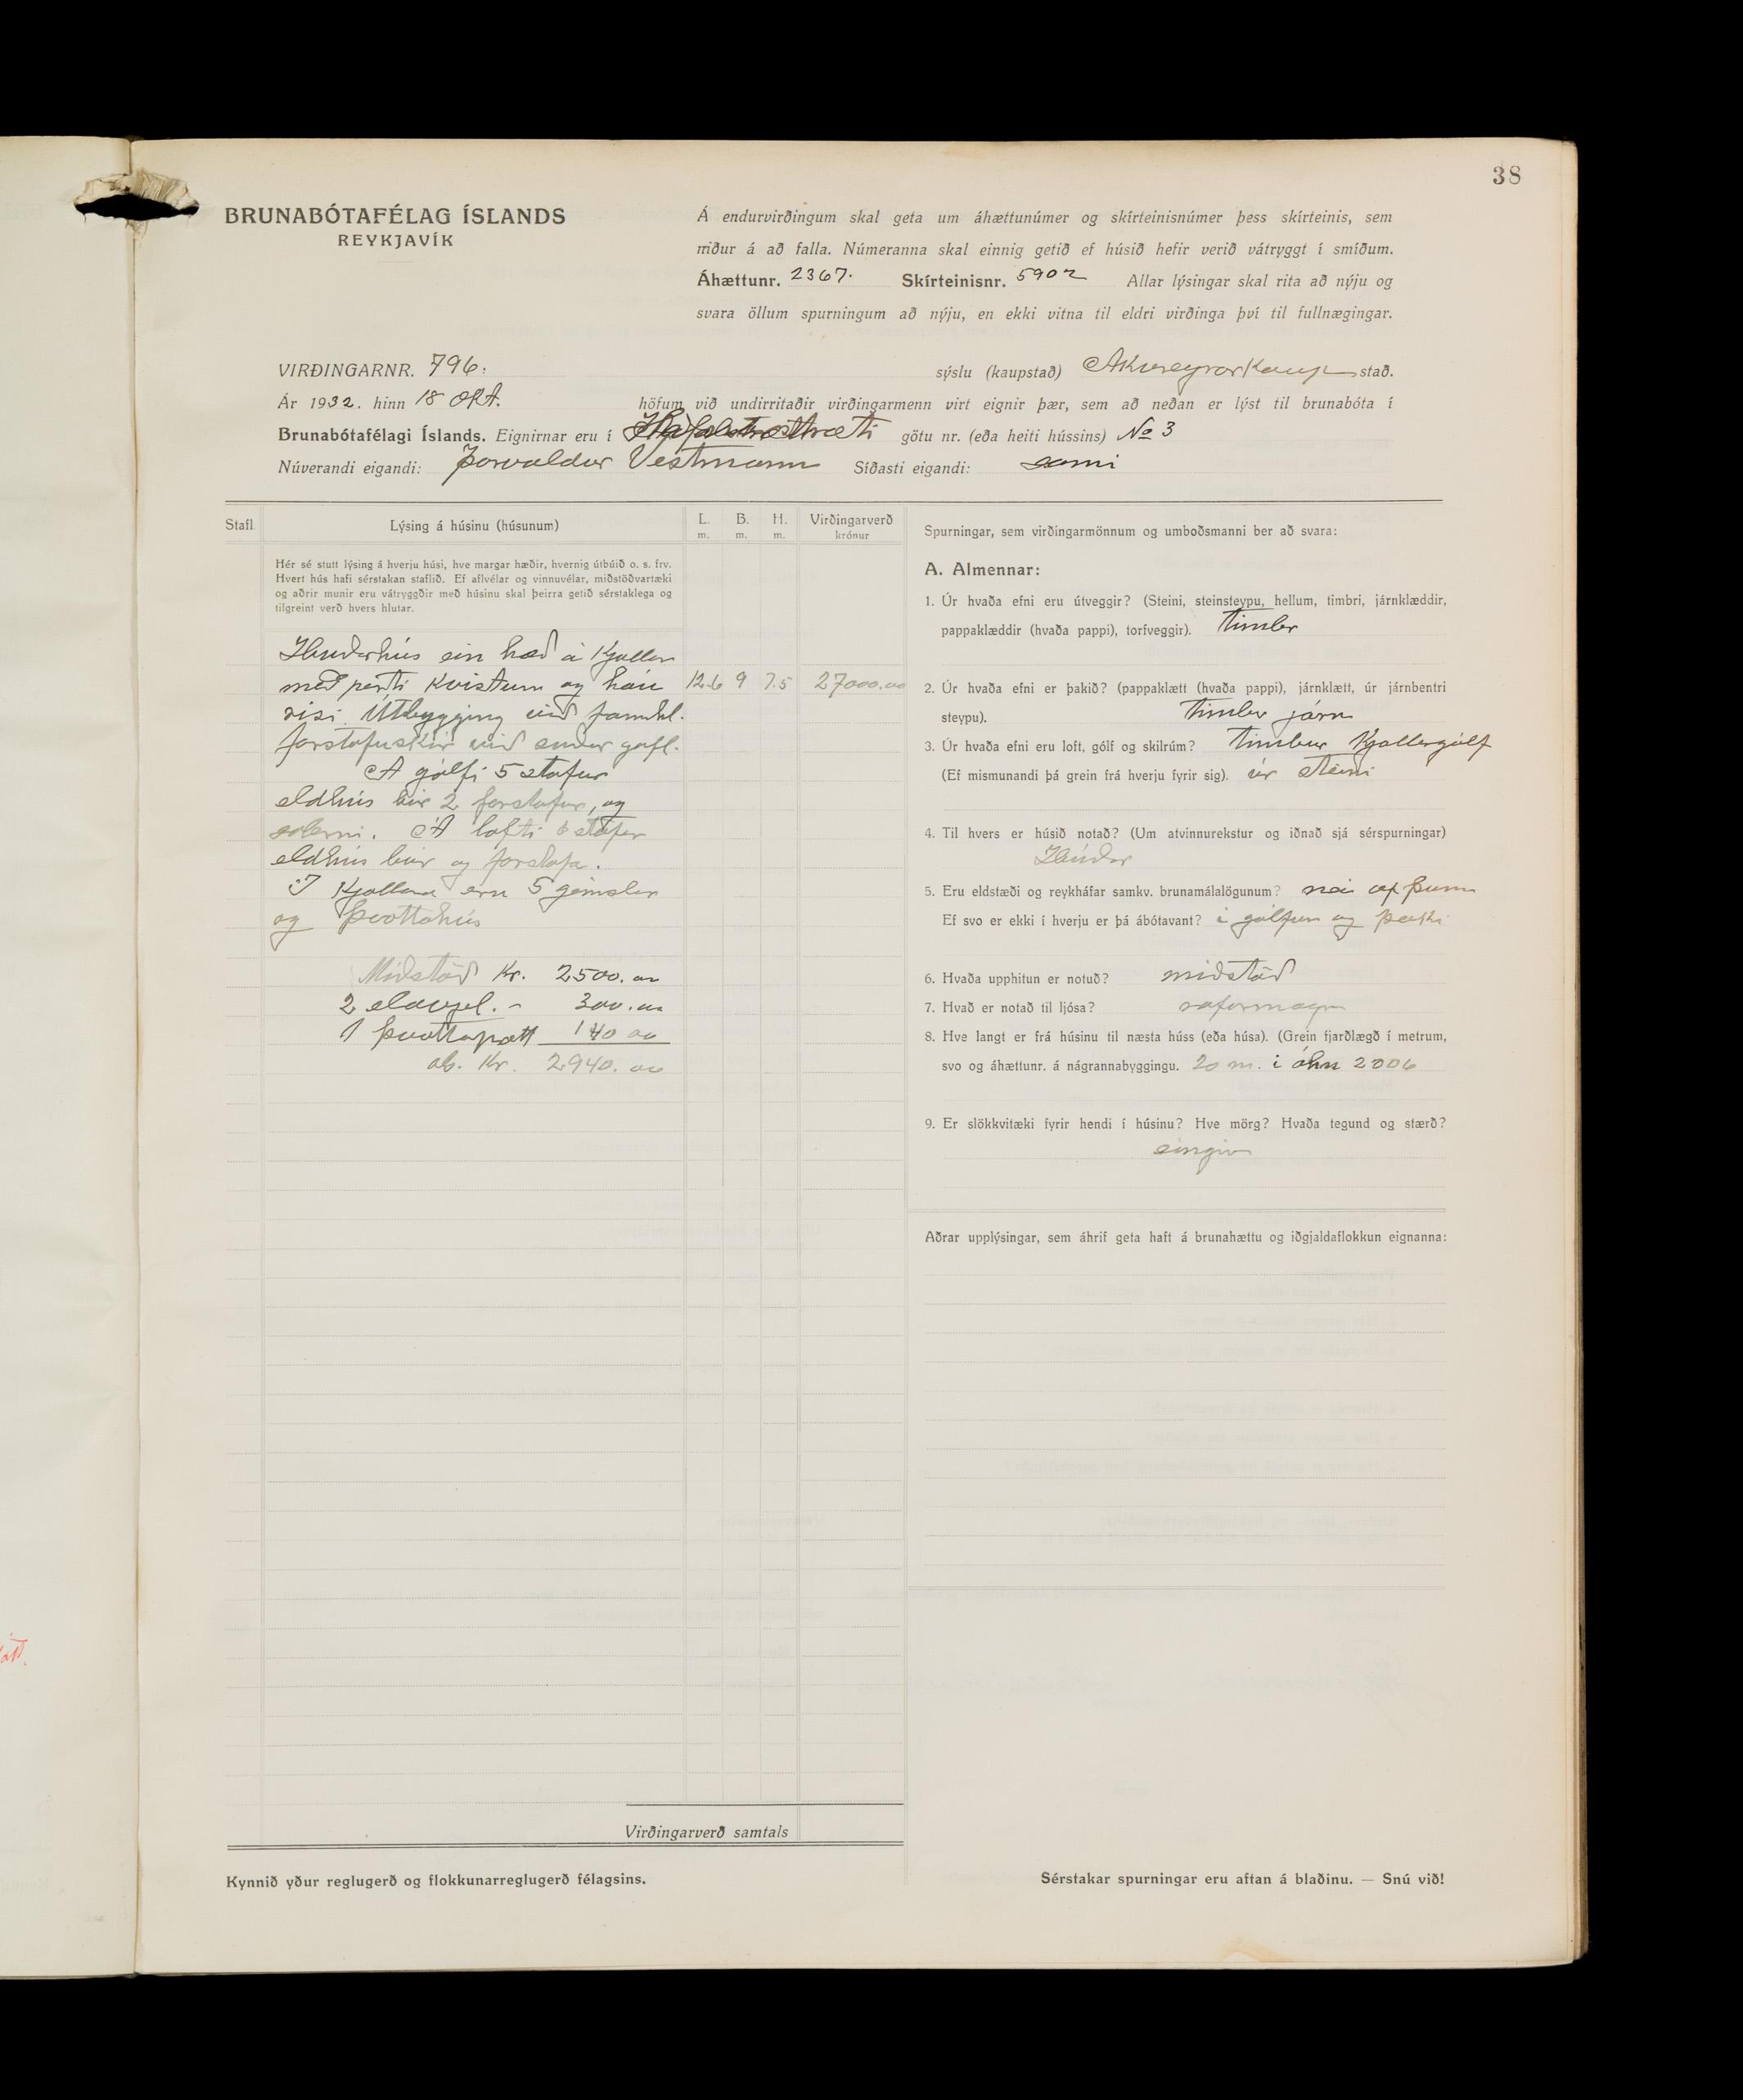 38
BRUNABÓTAFÉLAG ÍSLANDS
REYKJAVÍK
Á endurvirðingum skal geta um áhættunúmer og skírteinisnúmer þess skírteinis, sem
niður á að falla. Númeranna skal einnig getið ef húsið hefir verið vátryggt í smíðum.
Áhættunr. 2367. Skírteinisnr. 5902 Allar lýsingar skal rita að nýju og
svara öllum spurningum að nýju, en ekki vitna til eldri virðinga því til fullnægingar.
VIRÐINGARNR. 796. sýslu (kaupstað) Akureyrarkaupstað.
Ár 1932. hinn 18 okt. höfum við undirritaðir virðingarmenn virt eignir þær, sem að neðan er lýst til brunabóta í
Brunabótafélagi Íslands. Eignirnar eru í götu nr. (eða heiti hússins) No 3
Núverandi eigandi: Þorvaldur Vestmann Síðasti eigandi: sami
Stafl. Lýsing á húsinu (húsunum) L. m. B. m. H. m. Virðingarverð krónur
Hér sé stutt lýsing á hverju húsi, hve margar hæðir, hvernig útbúið o. s. frv.
Hvert hús hafi sérstakan staflið. Ef aflvélar og vinnuvélar, miðstöðvartæki
og aðrir munir eru vátryggðir með húsinu skal þeirra getið sérstaklega og
tilgreint verð hvers hlutar.
Íbúðarhús ein hæð á Kjallara
með porti Kvistum og háu 12.6 9 7.5 27000.00
risi. Útbygging við framhl.
forstofuskúr við suður gafl.
Á gólfi 5 stofur
eldhús búr 2 forstofur, og
salerni. Á lofti 6 stofur
eldhús búr og forstofa.
Í Kjallara eru 5 geimslur
og Þvottahús
Miðstöð Kr. 2500.00
2 eldavjel. - 300.00
1 Þvottapott 140 00
als. Kr. 2940.00
Virðingarverð samtals
Kynnið yður reglugerð og flokkunarreglugerð félagsins.
Spurningar, sem virðingarmönnum og umboðsmanni ber að svara:
A. Almennar:
1. Úr hvaða efni eru útveggir? (Steini, steinsteypu, hellum, timbri, járnklæddir,
pappaklæddir (hvaða pappi), torfveggir). Timbr
2. Úr hvaða efni er þakið? (pappaklætt (hvaða pappi), járnklætt, úr járnbentri
steypu). Timbr járn
3. Úr hvaða efni eru loft, gólf og skilrúm? Timbur Kjallaragólf
(Ef mismunandi þá grein frá hverju fyrir sig). úr steini
4. Til hvers er húsið notað? (Um atvinnurekstur og iðnað sjá sérspurningar)
Íbúðar
5. Eru eldstæði og reykháfar samkv. brunamálalögunum? nei of þunn
Ef svo er ekki í hverju er þá ábótavant? í gólfum og þaki
6. Hvaða upphitun er notuð? miðstöð
7. Hvað er notað til ljósa? rafurmagn
8. Hve langt er frá húsinu til næsta húss (eða húsa). (Grein fjarðlægð í metrum,
svo og áhættunr. á nágrannabyggingu. 20 m. í áhn 2006
9. Er slökkvitæki fyrir hendi í húsinu? Hve mörg? Hvaða tegund og stærð?
eingin
Aðrar upplýsingar, sem áhrif geta haft á brunahættu og iðgjaldaflokkun eignanna:
Sérstakar spurningar eru aftan á blaðinu. — Snú við!